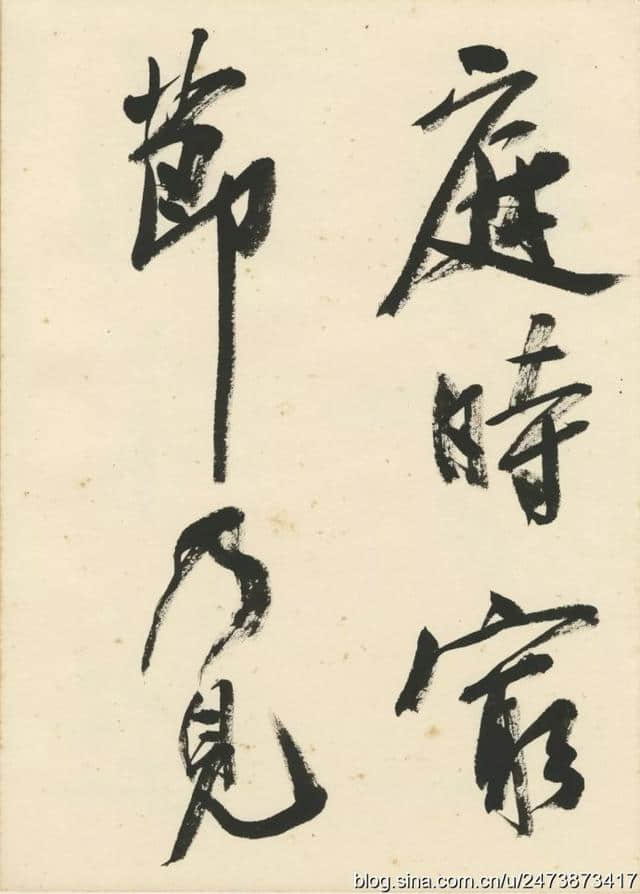 庭時窮
節乃見
blog.sina.com.cn/u/2473873417